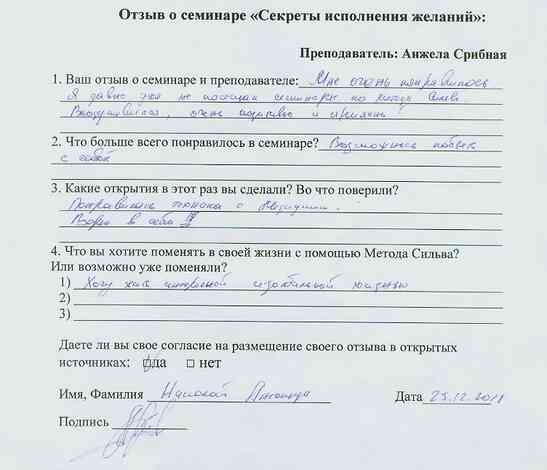 Отзыв о семинаре «Секреты исполнения желаний»:
Преподаватель: Анжела Срибная
1. Ваш отзыв о семинаре и преподавателе: Мне очень понравилось
Я давно уже не посещал семинары по методу Сильва
очень позитивно и
2. Что больше всего понравилось в семинаре? Возможность побыть
с собой
3. Какие открытия в этот раз вы сделали? Во что поверили?
Понравилась техника с
Верю в себя !!
4. Что вы хотите поменять в своей жизни с помощью Метода Сильва?
Или возможно уже поменяли?
1) Хочу жить интересной жизнью
2)
3)
Даете ли вы свое согласие на размещение своего отзыва в открытых
источниках: да нет
Имя, Фамилия Дата 25.12.2011
Подпись